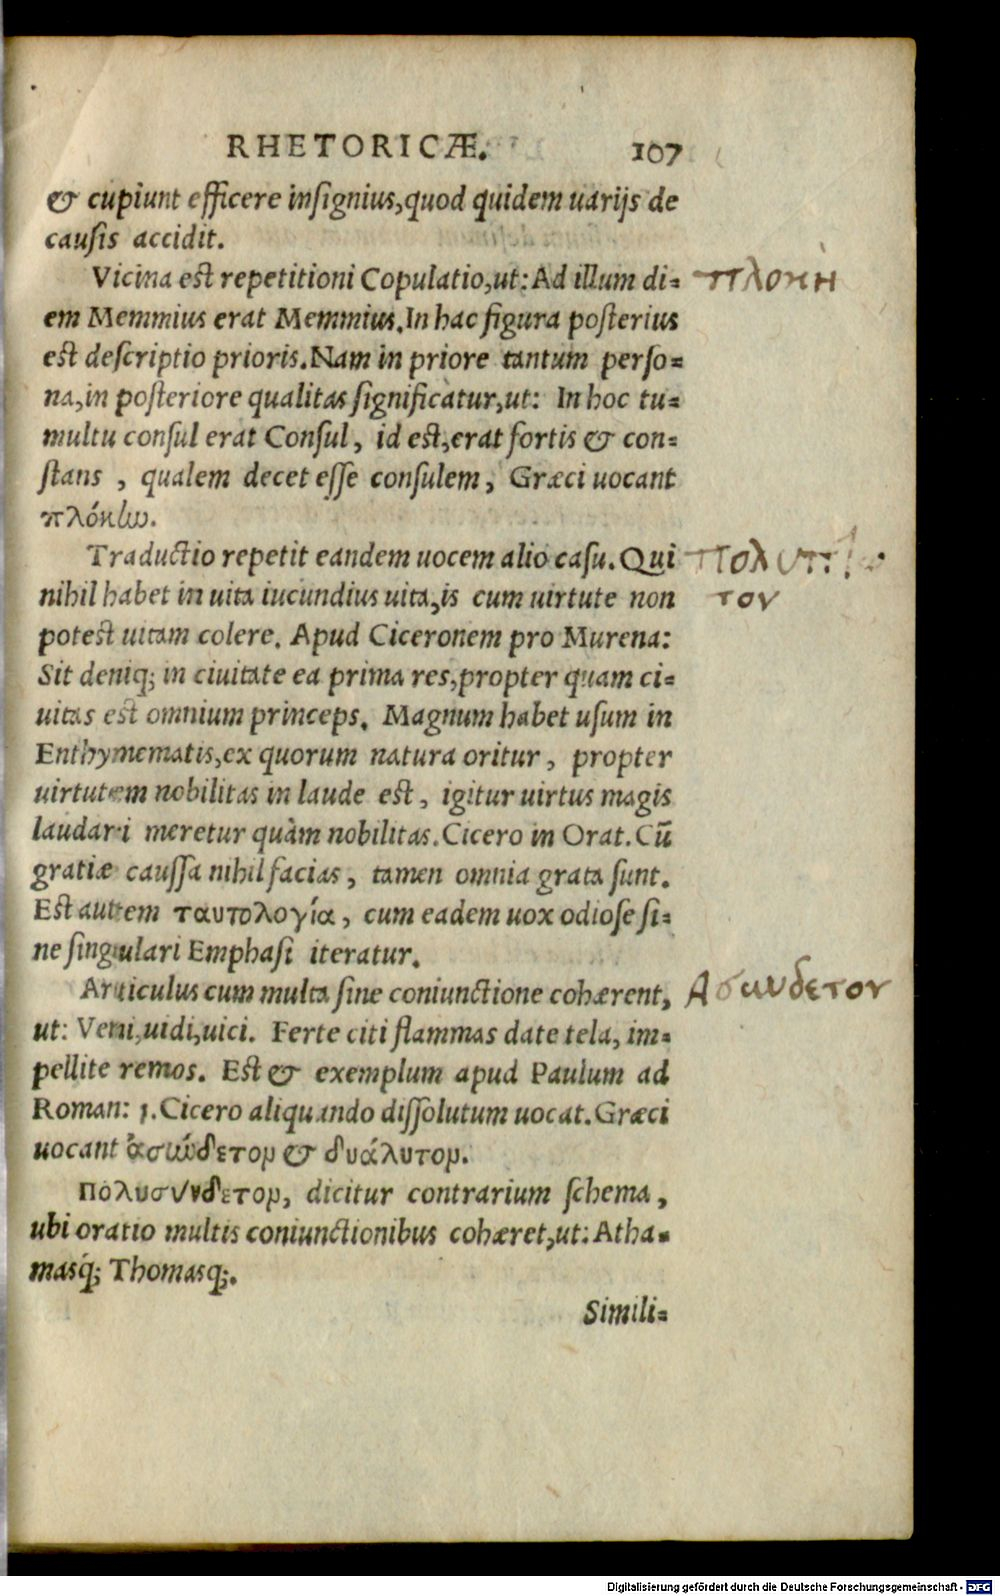 RHETORICÆ. 107
& cupiunt efficere insignius, quod quidem uarijs de
causis accidit.
Vicina est repetitioni Copulatio, ut: Ad illum di= πλοκὴ
em Memmius erat Memmius. In hac figura posterius
est descriptio prioris. Nam in priore tantum perso=
na, in posteriore qualitas significatur, ut: In hoc tu=
multu consul erat Consul, id est, erat fortis & con=
stans, qualem decet esse consulem, Græci uocant
πλόκην.
Traductio repetit eandem uocem alio casu. Qui
nihil habet in uita iucundius uita, is cum uirtute non τον
potest uitam colere. Apud Ciceronem pro Murena:
Sit deniq; in ciuitate ea prima res, propter quam ci=
uitas est omnium princeps. Magnum habet usum in
Enthymematis, ex quorum natura oritur, propter
uirtutem nobilitas in laude est, igitur uirtus magis
laudari meretur quàm nobilitas. Cicero in Orat. Cū
gratiæ caussa nihil facias, tamen omnia grata sunt.
Est autem ταυτολογία, cum eadem uox odiose si=
ne singulari Emphasi iteratur.
Articulus cum multa sine coniunctione cohærent, Ασωνδετον
ut: Veni, uidi, uici. Ferte citi flammas date tela, im=
pellite remos. Est & exemplum apud Paulum ad
Roman: 1. Cicero aliquando dissolutum uocat. Græci
uocant ἀσύνδετον & δυάλυτον.
Πολυσύνδετον, dicitur contrarium schema,
ubi oratio multis coniunctionibus cohæret, ut: Atha=
masq́; Thomasq́;.
Simili=
Digitalisierung gefördert durch die Deutsche Forschungsgemeinschaft - DFG